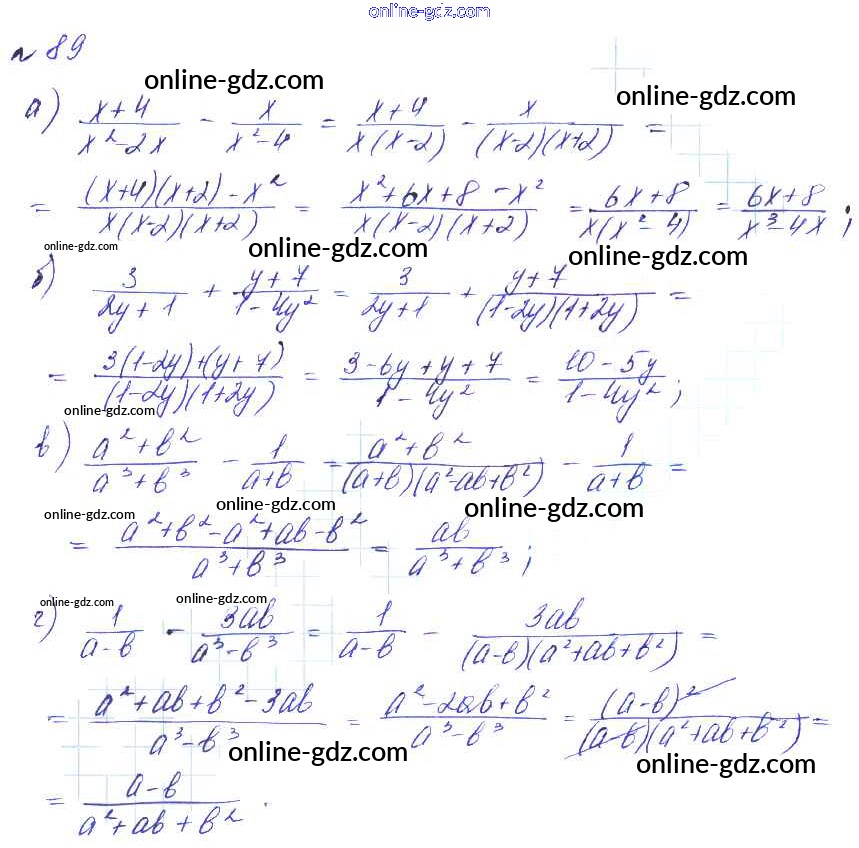 online-gdz.com
№ 89
online-gdz.com
online-gdz.com
а) (x+4)/(x²-2x) - x/(x²-4) = (x+4)/(x(x-2)) - x/((x-2)(x+2)) =
= ((x+4)(x+2)-x²)/(x(x-2)(x+2)) = (x²+6x+8-x²)/(x(x-2)(x+2)) = (6x+8)/(x(x²-4)) = (6x+8)/(x³-4x);
online-gdz.com
online-gdz.com
online-gdz.com
б) 3/(2y+1) + (y+7)/(1-4y²) = 3/(2y+1) + (y+7)/((1-2y)(1+2y)) =
= (3(1-2y)+(y+7))/((1-2y)(1+2y)) = (3-6y+y+7)/(1-4y²) = (10-5y)/(1-4y²);
online-gdz.com
в) (a²+b²)/(a³+b³) - 1/(a+b) = (a²+b²)/((a+b)(a²-ab+b²)) - 1/(a+b) =
online-gdz.com
online-gdz.com
online-gdz.com
= (a²+b²-a²+ab-b²)/(a³+b³) = ab/(a³+b³);
online-gdz.com
online-gdz.com
г) 1/(a-b) - 3ab/(a³-b³) = 1/(a-b) - 3ab/((a-b)(a²+ab+b²)) =
= (a²+ab+b²-3ab)/(a³-b³) = (a²-2ab+b²)/(a³-b³) = (a-b)²/((a-b)(a²+ab+b²)) =
online-gdz.com
online-gdz.com
= (a-b)/(a²+ab+b²).